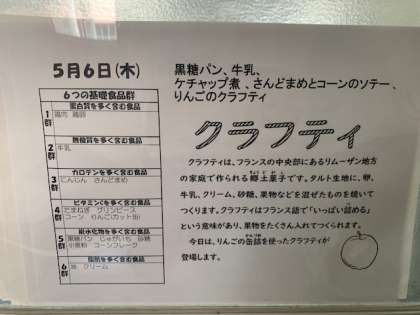 5月6日(木)
黒糖パン、牛乳、
ケチャップ煮、さんどまめとコーンのソテー、
りんごのクラフティ
6つの基礎食品群
1群
蛋白質を多く含む食品
鶏肉 鶏卵
2群
無機質を多く含む食品
牛乳
3群
カロテンを多く含む食品
にんじん さんどまめ
4群
ビタミンCを多く含む食品
たまねぎ グリンピース
コーン りんご(カット缶)
5群
炭水化物を多く含む食品
黒糖パン じゃがいも 砂糖
小麦粉 コーンフレーク
6群
脂肪を多く含む食品
油 クリーム
クラフティ
クラフティは、フランスの中央部にあるリムーザン地方
の家庭で作られる郷土菓子です。タルト生地に、卵、
牛乳、クリーム、砂糖、果物などを混ぜたものを焼いて
つくります。クラフティはフランス語で「いっぱい詰める」
という意味があり、果物をたくさん入れてつくられます。
今日は、りんごの缶詰を使ったクラフティが
登場します。